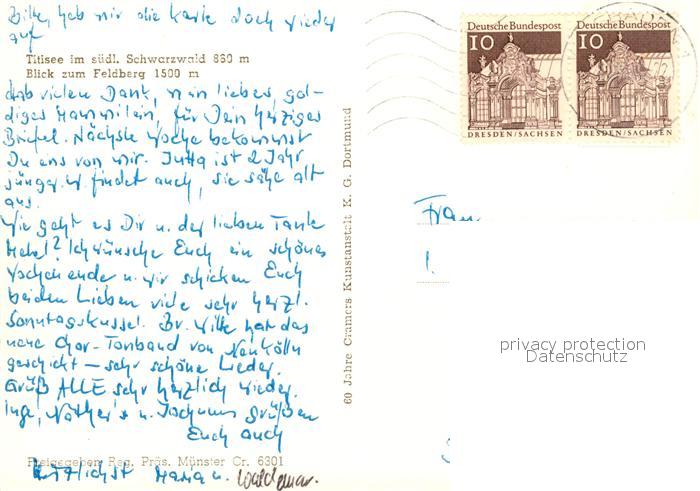 Bitte, heb mir die Karte doch wieder
auf
Titisee im südl. Schwarzwald 860 m
Blick zum Feldberg 1500 m
Hab vielen Dank, mein liebes, gol-
diges Mammilein, für Dein herziges
Briefel. Nächste Woche bekommst
Du ens von mir. Jutta ist 2 Jahr
jünger. W. findet auch, sie sähe alt
aus.
Wie geht es Dir u. der lieben Tante
Mehel? Ich wünsche Euch ein schönes
Wochenende u. wir schicken Euch
beiden Lieben viele sehr herzl.
Sonntagskussel. Br. Witte hat das
neue Chor-Tonband von Neukölln
geschickt – sehr schöne Lieder.
Grüß ALLE sehr herzlich wieder.
Inge, Nöther's u. Jochums grüßen
Euch auch
Freigegeben Reg. Präs. Münster Cr. 6301
herzlichst Maria u. Waldemar.
60 Jahre Cramers Kunstanstalt K. G. Dortmund
Deutsche Bundespost
10
DRESDEN/SACHSEN
Deutsche Bundespost
10
DRESDEN/SACHSEN
Frau
privacy protection
Datenschutz